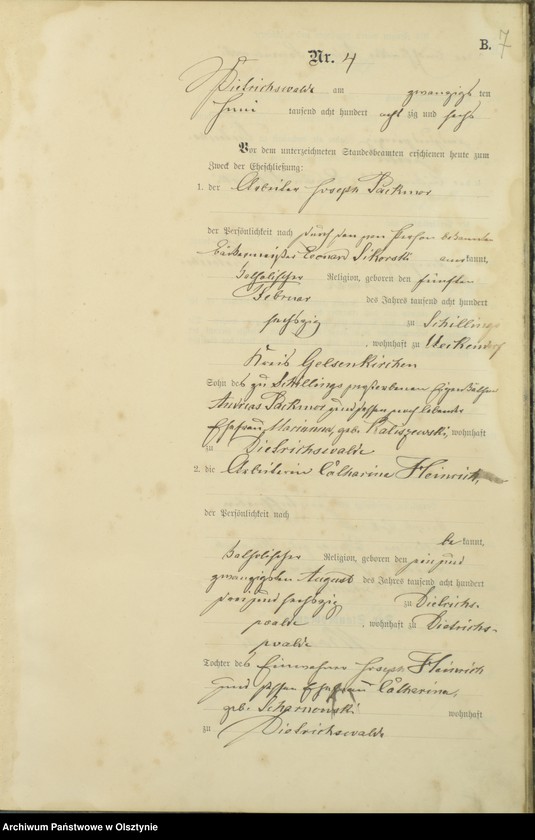 B. 7
Nr. 4
Dietrichswalde am zwanzigs ten
Juni tausend acht hundert acht zig und sechs
Vor dem unterzeichneten Standesbeamten erschienen heute zum
Zweck der Eheschließung:
1. der Arbeiter Joseph Packmor
der Persönlichkeit nach durch den von Person bekannten
Leonard Sikorski aner kannt,
katholischer Religion, geboren den fünften
Februar des Jahres tausend acht hundert
sechszig zu Schillings
, wohnhaft zu Ueckendorf
Kreis Gelsenkirchen
Sohn des zu Schillings verstorbenen Eigenkäthner
Andreas Packmor und dessen noch lebender
Ehefrau Marianna, geb. Kaliszewski, wohnhaft
zu Dietrichswalde
2. die Arbeiterin Catharina Heinrich,
der Persönlichkeit nach
be kannt,
katholischer Religion, geboren den ein und
zwanzigsten August des Jahres tausend acht hundert
drei und sechszig zu Dietrichs-
walde , wohnhaft zu Dietrichs-
walde
Tochter des Einwohner Joseph Heinrich
und dessen Ehefrau Catharina,
geb. wohnhaft
zu Dietrichswalde
Archiwum Państwowe w Olsztynie